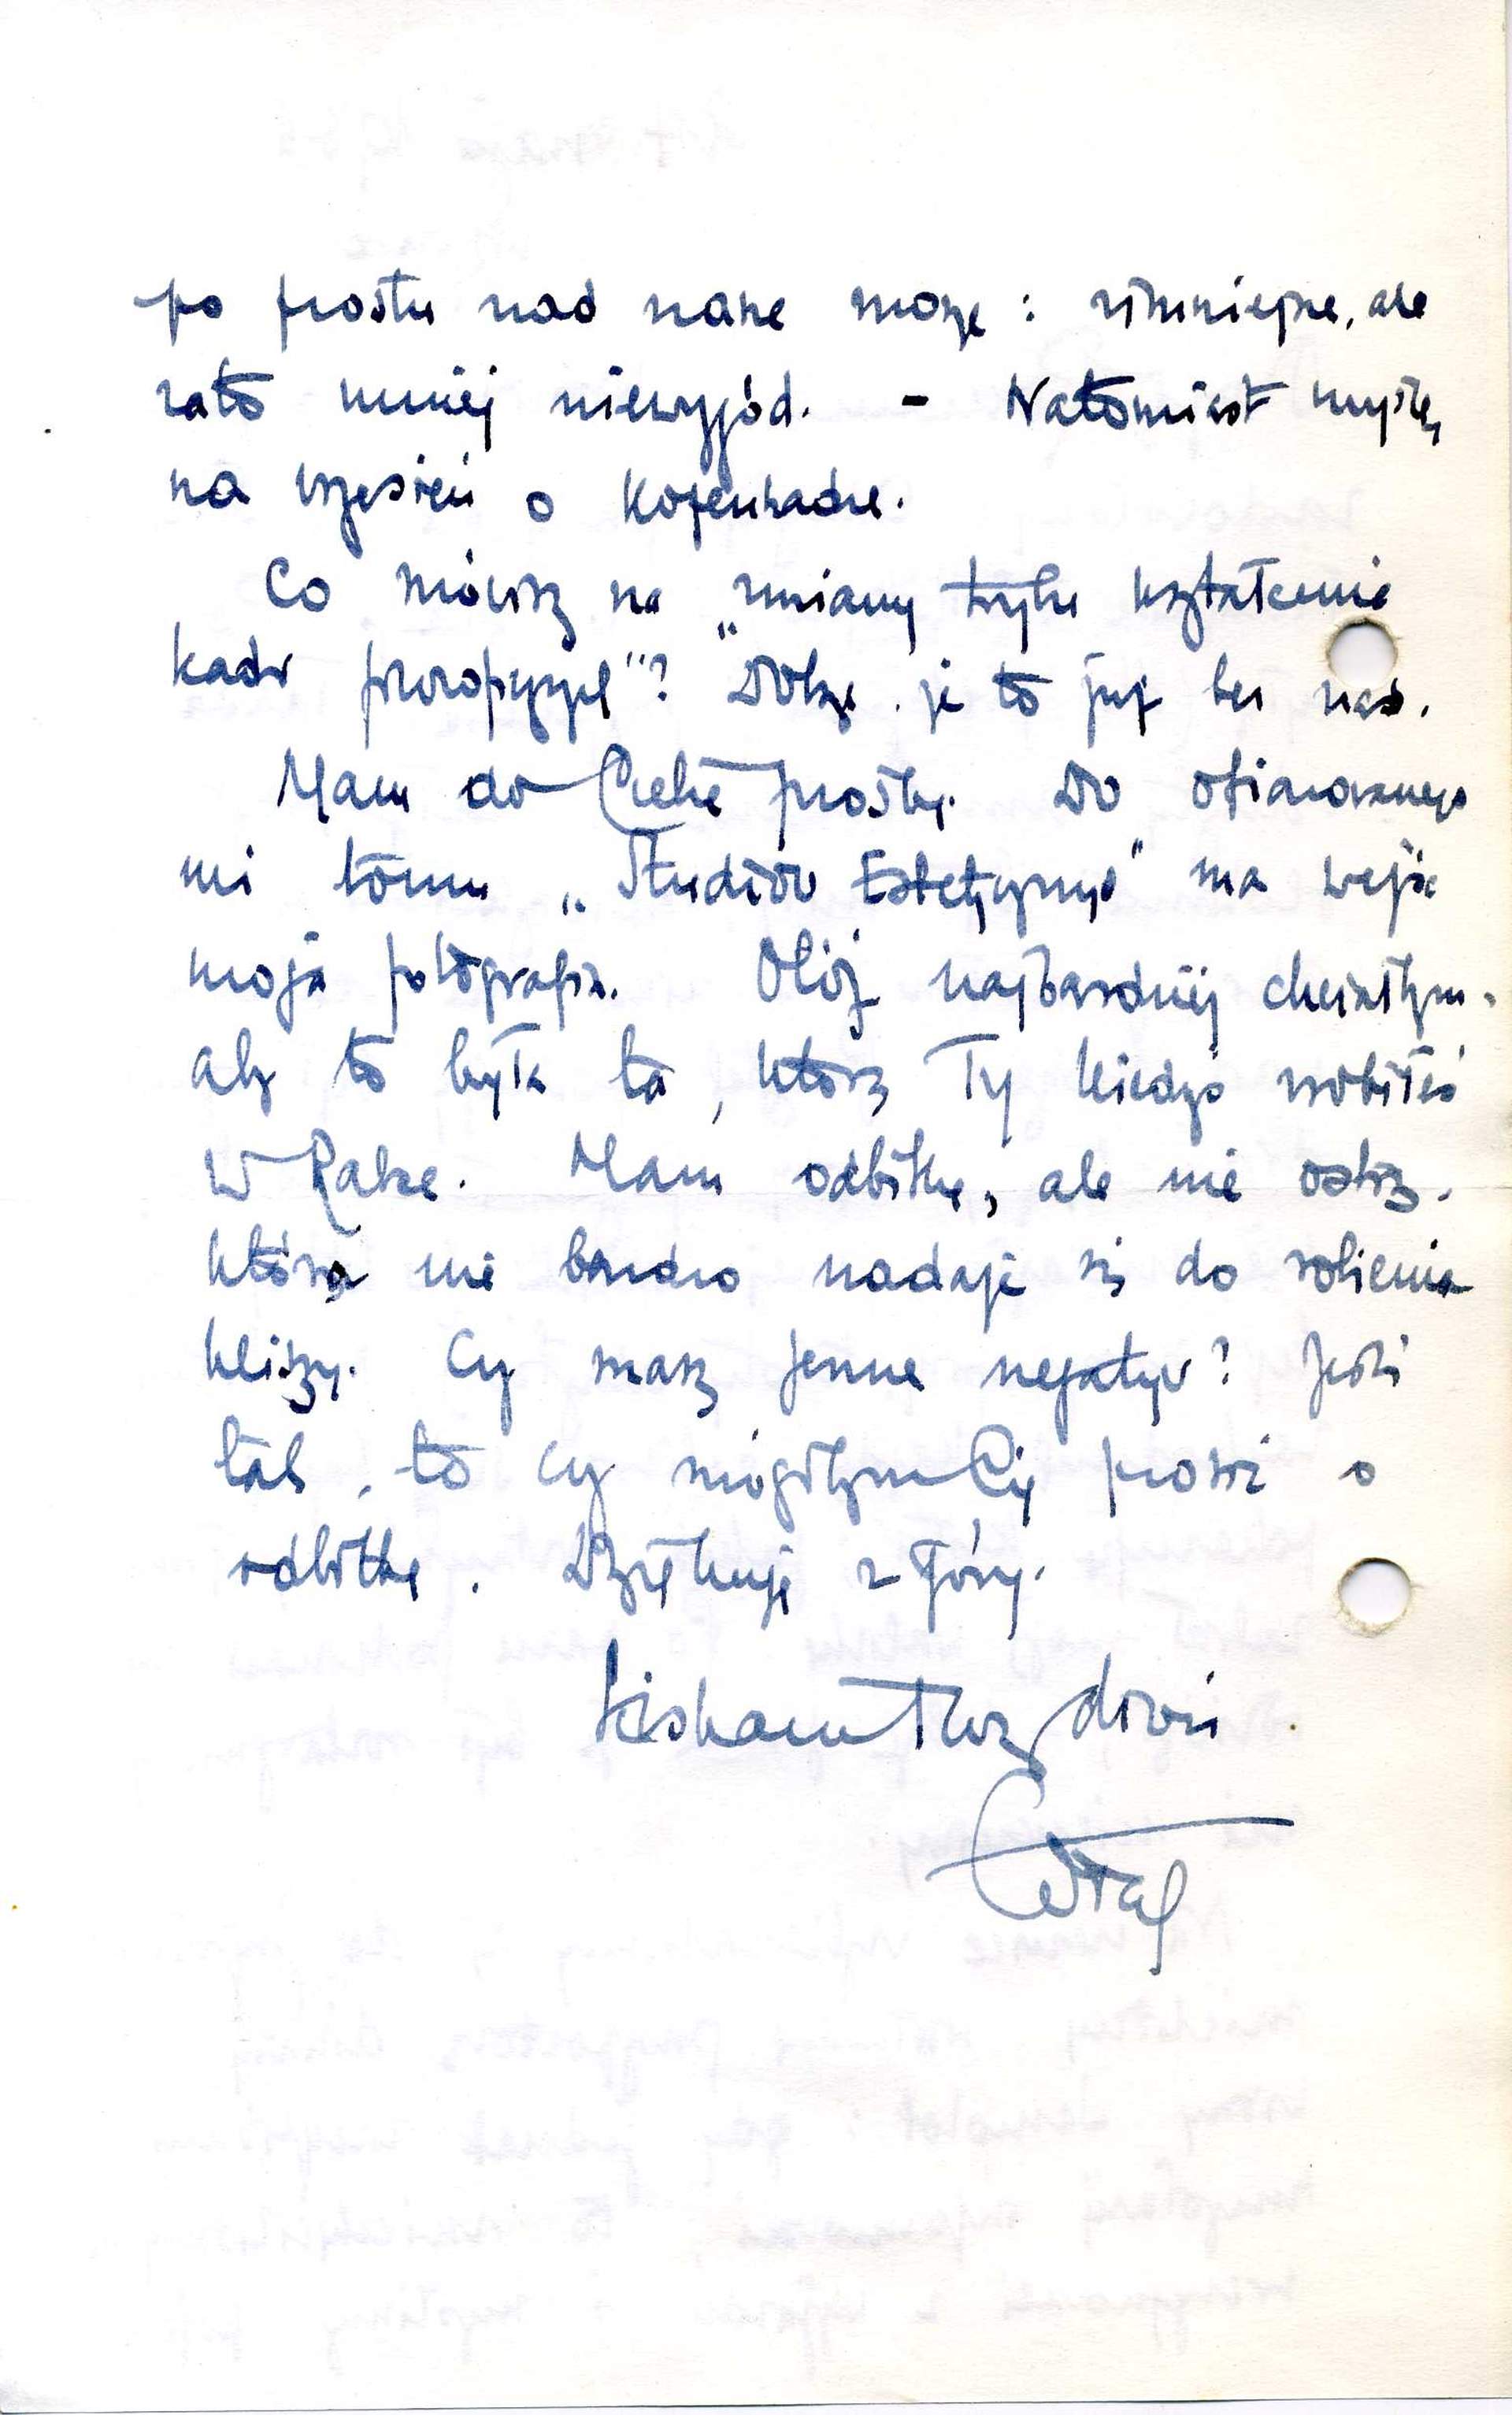 po prostu nad nasze morze : zimniejsze, ale
zato mniej niewygód. - Natomiast myślę
na wrzesień o Kopenhadze.
Co mówisz na „zmiany trybu kształcenia
kadr przez opryszek"? Dobrze, że to już bez nas.
Mam do Ciebie prośbę. Do ofiarowanego
mi tomu „Studiów Estetycznych" ma wejść
moja fotografia. Otóż najbardziej chciałbym,
aby to była ta, którą Ty kiedyś zrobiłeś
w Rabce. Mam odbitkę, ale nie ostrą,
która nie bardzo nadaje się do robienia
kliszy. Czy masz jeszcze negatyw? Jeśli
tak, to czy mógłbym Cię prosić o
odbitkę. Dziękuję z góry.
Ściskam Twą dłoń